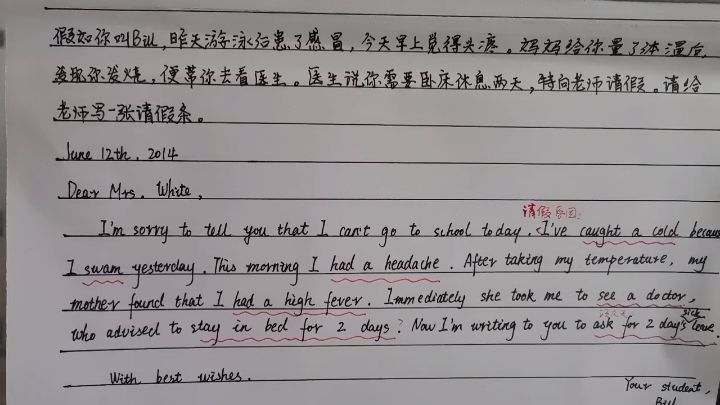 假如你叫Bill,昨天游泳后患了感冒,今天早上觉得头疼。妈妈给你量了体温后,
发现你发烧,便带你去看医生。医生说你需要卧床休息两天,特向老师请假。请给
老师写一张请假条。
June 12th, 2014
Dear Mrs. White,
请假原因:
I'm sorry to tell you that I can't go to school today. I've caught a cold becau
I swam yesterday. This morning I had a headache. After taking my temperature, my
mother found that I had a high fever. Immediately she took me to see a doctor,
who advised to stay in bed for 2 days? Now I'm writing to you to ask for 2 day's sick leave.
With best wishes.
Your student,
Bill